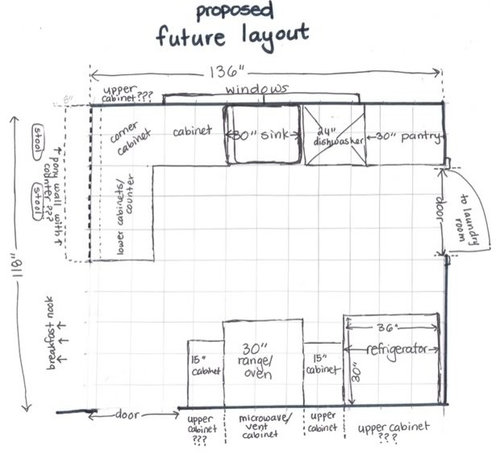 proposed
future layout
136"
upper
cabinet???
windows
8"
corner
cabinet
cabinet
30" sink
24"
dishwasher
30" pantry
stool
stool
pony wall with
counter???
lower cabinets/
counter
door
to laundry
room
118"
breakfast nook
15"
cabinet
30"
range/
oven
15"
cabinet
36"
refrigerator
30"
door
upper
cabinet
???
microwave/
vent
cabinet
upper
cabinet
upper cabinet
???